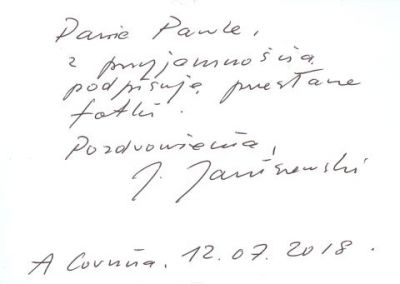 Panie Pawle,
z przyjemnością
podpisuję przesłane
fotki.
Pozdrowienia,
J. Janiszewski
A Coruña, 12.07.2018.